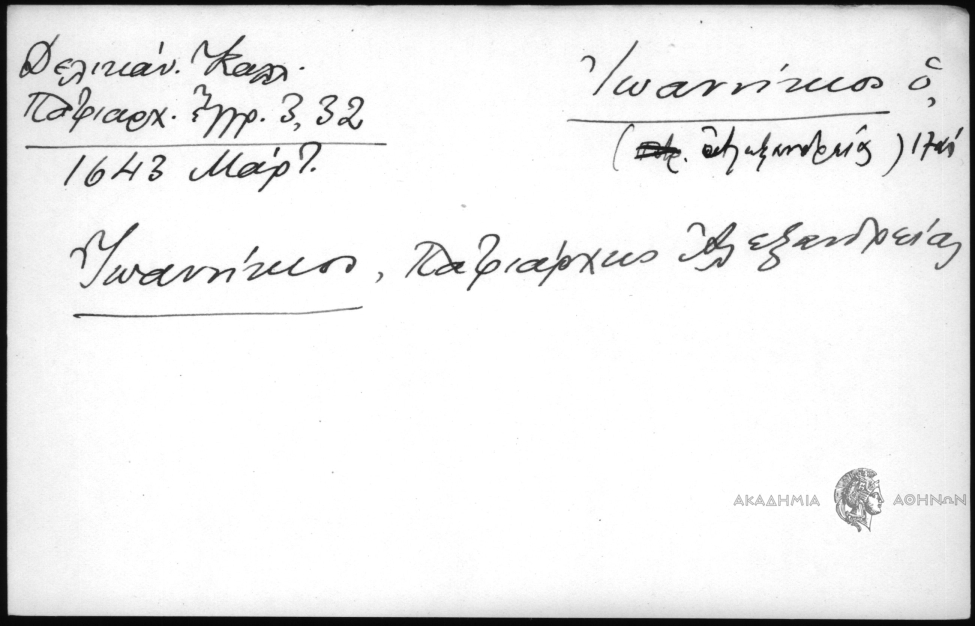 Δελικάν. Καλλ.
Πατριαρχ. Ἔγγρ. 3, 32
1643 Μάρτ.
Ἰωαννίκιος ὁ,
( Ἀλεξανδρείας )
Ἰωαννίκιος, Πατριάρχης Ἀλεξανδρείας
ΑΚΑΔΗΜΙΑ ΑΘΗΝΩΝ